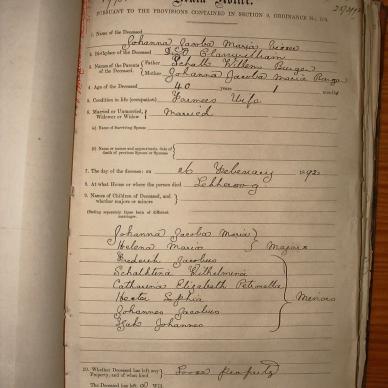 Death Notice.
PURSUANT TO THE PROVISIONS CONTAINED IN SECTION 9, ORDINANCE No. 104.
1. Name of the Deceased
Johanna Jacoba Maria
2. Birthplace of the Deceased Clanwilliam
3. Names of the Parents of the Deceased. Father Schalk Willem Burger
Mother Johanna Jacoba Maria Burger
4. Age of the Deceased 40 years 1 months
5. Condition in life (occupation) Farmers Wife
6. Married or Unmarried, Widower or Widow Married
(a) Name of Surviving Spouse
(b) Name or names and approximate date of death of previous Spouse or Spouses
7. The day of the decease: on 26 February
8. At what House or where the person died
9. Names of Children of Deceased, and whether majors or minors
(Stating separately those born of different marriages)
Johanna Jacoba Maria
Helena Maria Majors
Frederik Jacobus
Schalktena Wilhelmina
Catharina Elizabeth Petronella
Hester Sophia Minors
Johannes Jacobus
Johannes
10. Whether Deceased has left any Property, and of what kind Loose property
The Deceased has left no Will.